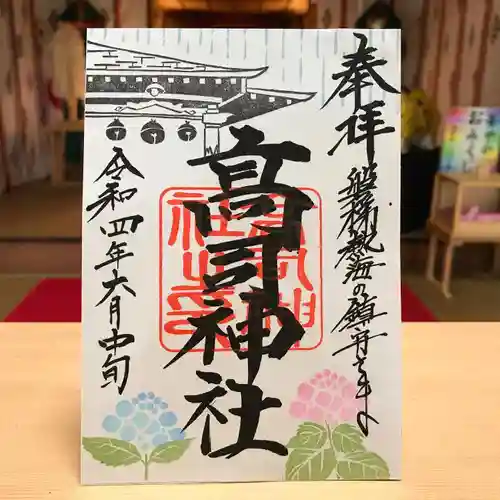 奉拝
磐梯熱海の鎮守さま
高司神社
令和四年六月中旬